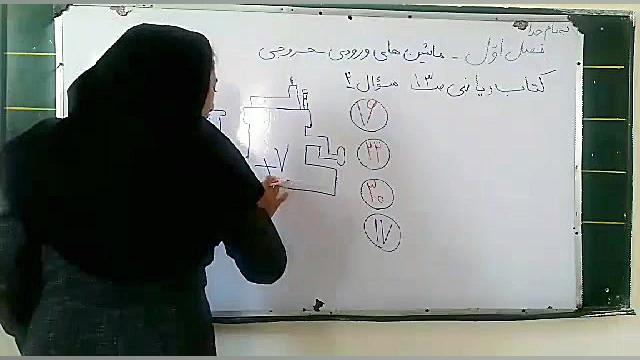 بنام خدا
فصل اول - ماشین های ورودی - خروجی
کتاب ریاضی ص ۱۳ سؤال ۲
+۷
۲۲
۳۰
۱۷